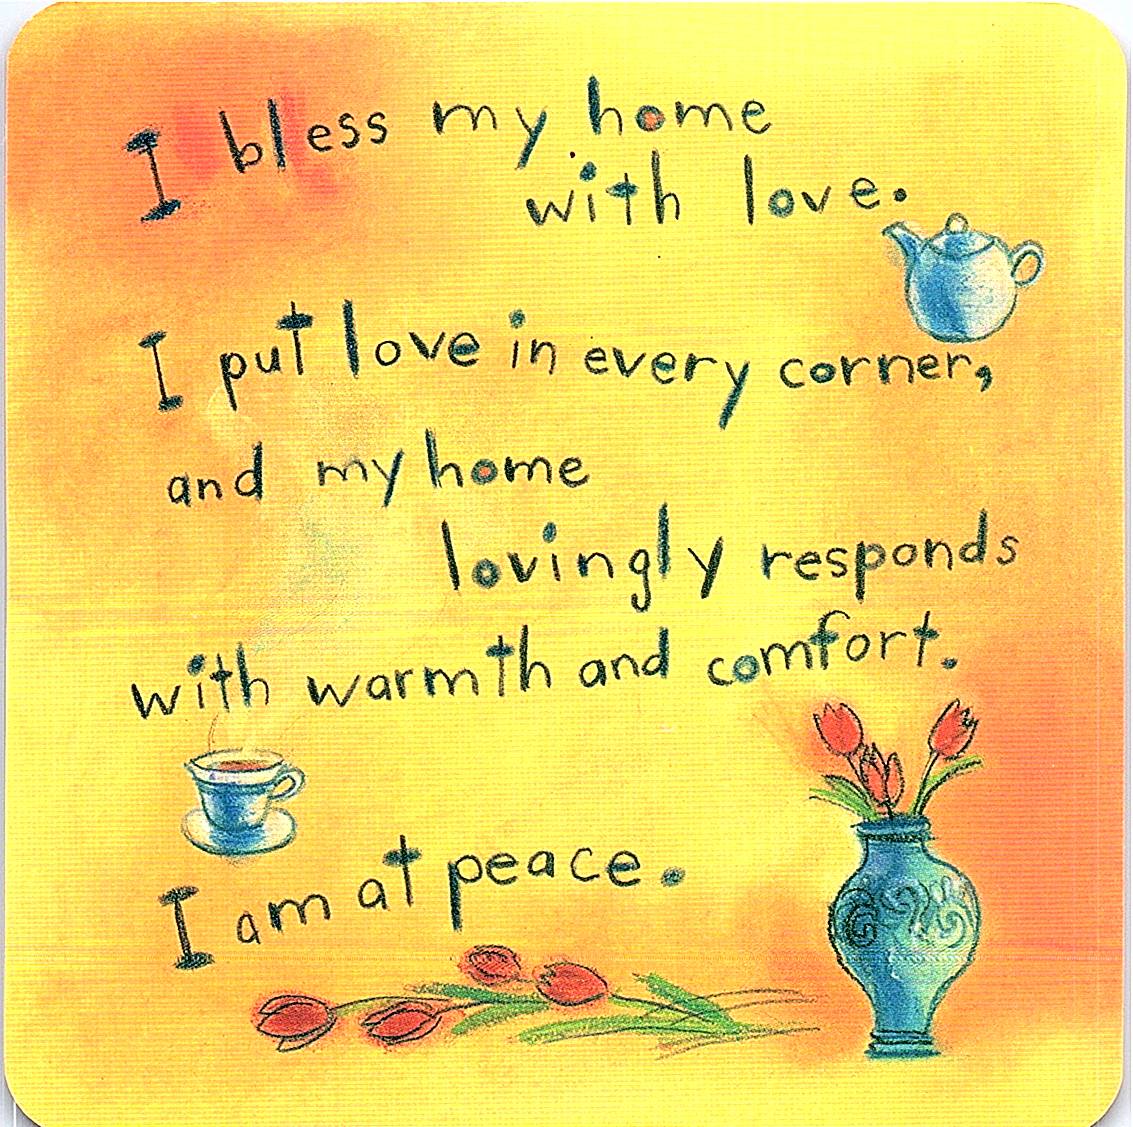 I bless my home
with love.
I put love in every corner,
and my home
lovingly responds
with warmth and comfort.
I am at peace.